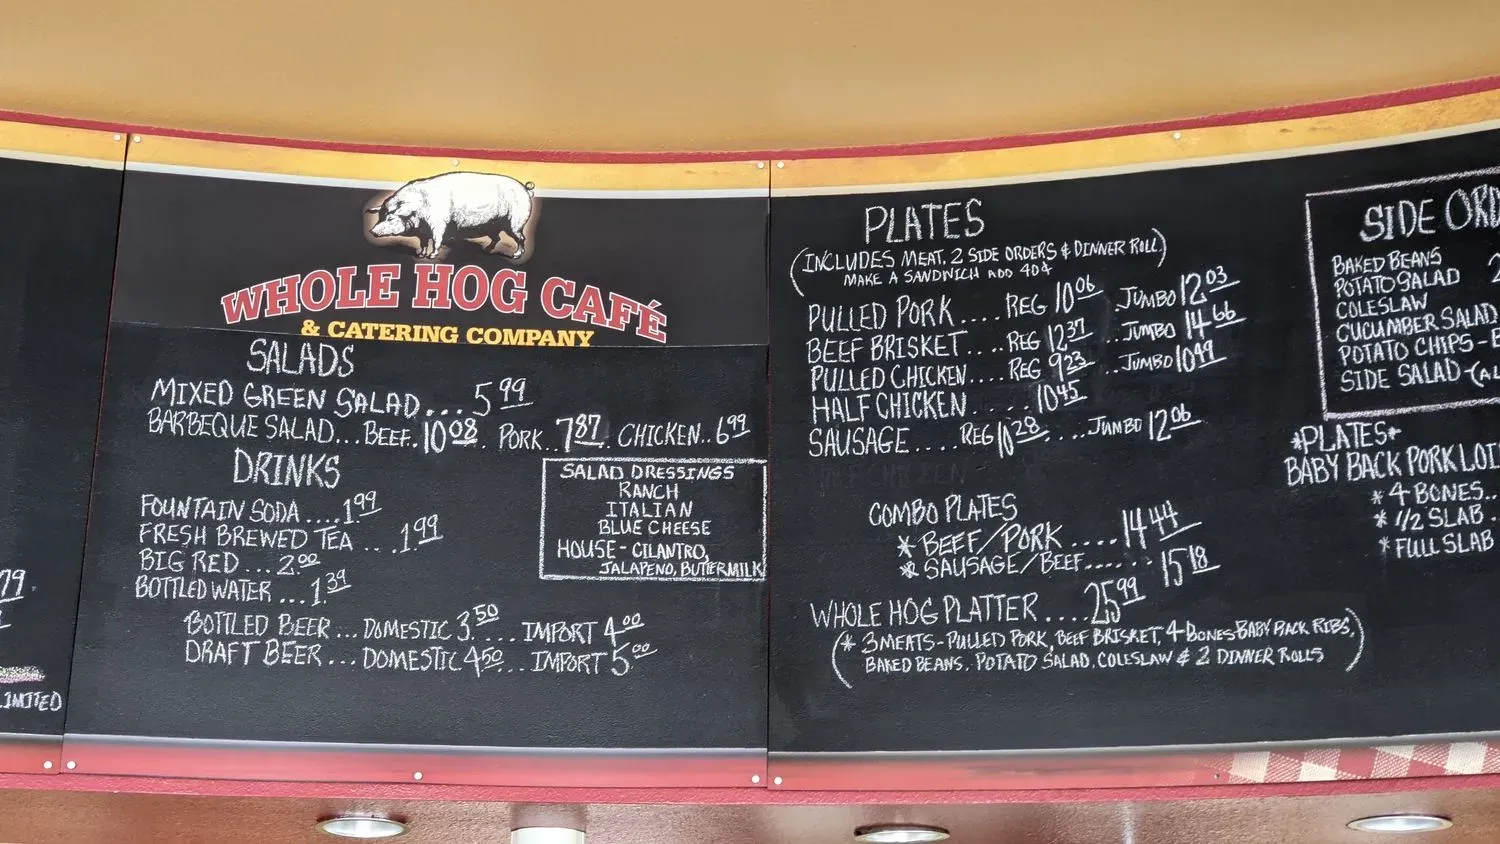 79
LIMITED
WHOLE HOG CAFÉ
& CATERING COMPANY
SALADS
MIXED GREEN SALAD... 5.99
BARBEQUE SALAD... BEEF.. 10.08. PORK.. 7.87. CHICKEN.. 6.99
DRINKS
FOUNTAIN SODA .... 1.99
FRESH BREWED TEA ... 1.99
BIG RED ... 2.00
BOTTLED WATER .... 1.39
BOTTLED BEER ... DOMESTIC 3.50 ... IMPORT 4.00
DRAFT BEER ... DOMESTIC 4.50 ... IMPORT 5.00
SALAD DRESSINGS
RANCH
ITALIAN
BLUE CHEESE
HOUSE - CILANTRO,
JALAPENO, BUTTERMILK
PLATES
(INCLUDES MEAT, 2 SIDE ORDERS & DINNER ROLL)
MAKE A SANDWICH ADD 40¢
PULLED PORK .... REG 10.06 . JUMBO 12.03
BEEF BRISKET.... REG 12.37 ... JUMBO 14.66
PULLED CHICKEN.... REG 9.23 ... JUMBO 10.49
HALF CHICKEN ..... 10.45
SAUSAGE.... REG 10.28 .... JUMBO 12.06
COMBO PLATES
* BEEF/PORK .... 14.44
* SAUSAGE/BEEF...... 15.18
WHOLE HOG PLATTER .... 25.99
(* 3 MEATS - PULLED PORK, BEEF BRISKET, 4-BONES BABY BACK RIBS,
BAKED BEANS, POTATO SALAD, COLESLAW & 2 DINNER ROLLS)
SIDE ORD
BAKED BEANS
POTATO SALAD
COLESLAW
CUCUMBER SALAD
POTATO CHIPS -
SIDE SALAD - (AL
*PLATES*
BABY BACK PORK LOI
* 4 BONES..
* 1/2 SLAB .
* FULL SLAB